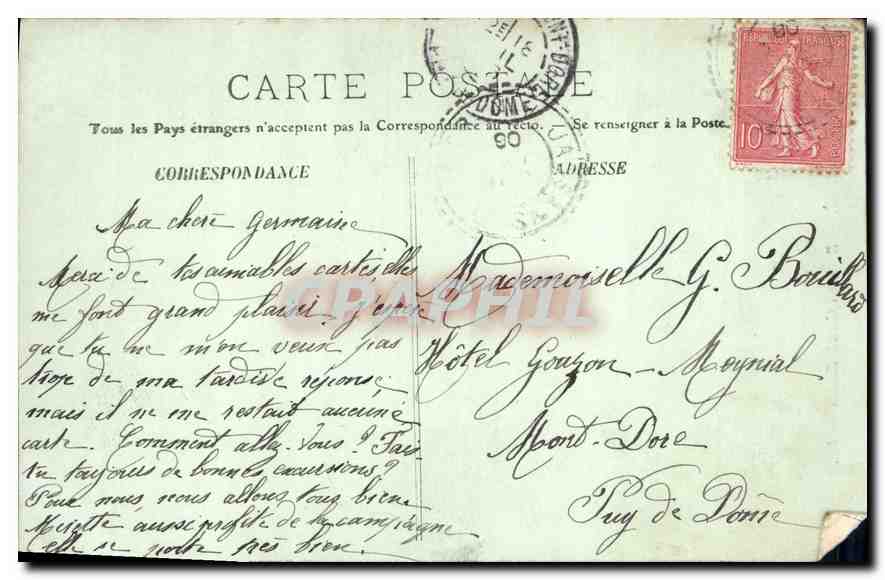 CARTE POSTALE
Tous les Pays étrangers n'acceptent pas la Correspondance au recto. Se renseigner à la Poste.
CORRESPONDANCE
ADRESSE
REPUBLIQUE FRANÇAISE
10
POSTES
MONT-DORE
DOME
Ma chère Germaine
Merci de tes aimables cartes, elles
me font grand plaisir. J'espère
que tu ne m'en veux pas
trop de ma tardive réponse
mais il ne me restait aucune
carte. Comment allez-vous ? Fais
tu toujours de bonnes excursions ?
Pour nous, nous allons tous bien.
aussi profite de la campagne
elle se porte très bien.
Mademoiselle G. Bouillard
Hôtel Gouzon-Meynial
Mont-Dore
Puy de Dôme
CPAPHIL